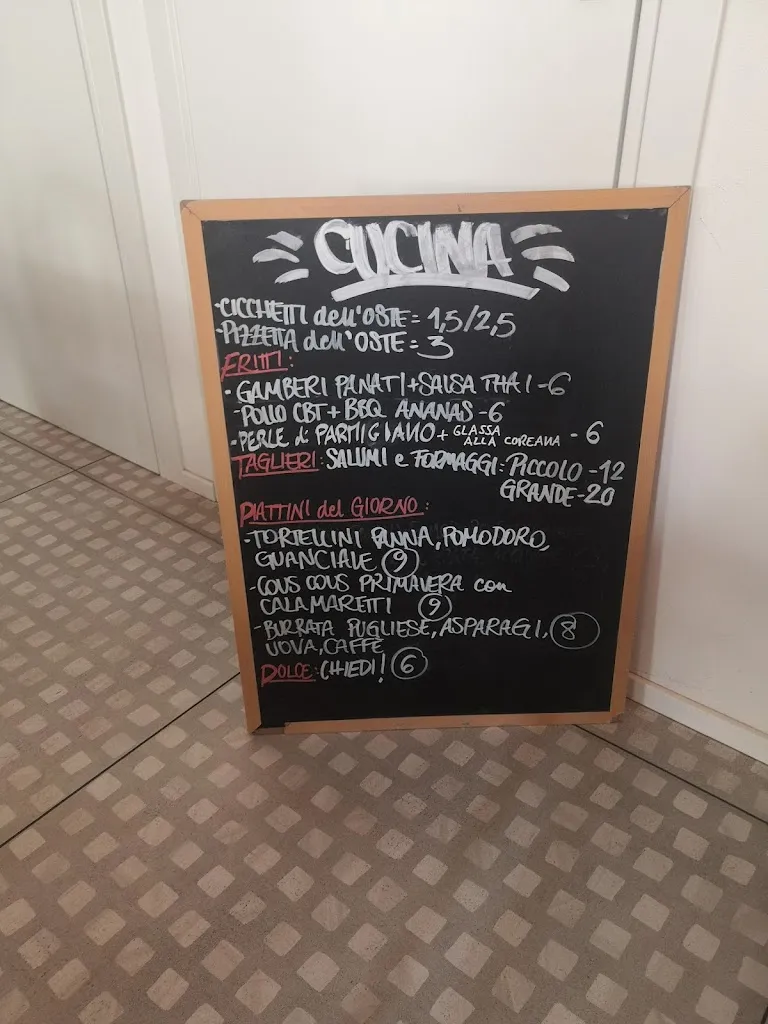 CUCINA
-CICCHETTI dell'OSTE = 1,5/2,5
-PIZZETTA dell'OSTE = 3
FRITTI:
- GAMBERI PANATI + SALSA THAI - 6
-POLLO CBT + BBQ ANANAS - 6
-PERLE di PARMIGIANO + GLASSA ALLA COREANA - 6
TAGLIERI: SALUMI e FORMAGGI: PICCOLO - 12
GRANDE - 20
PIATTINI del GIORNO:
-TORTELLINI PANNA, POMODORO,
GUANCIALE 9
-COUS COUS PRIMAVERA con
CALAMARETTI 9
-BURRATA PUGLIESE, ASPARAGI, 8
UOVA, CAFFÈ
DOLCE: CHIEDI! 6